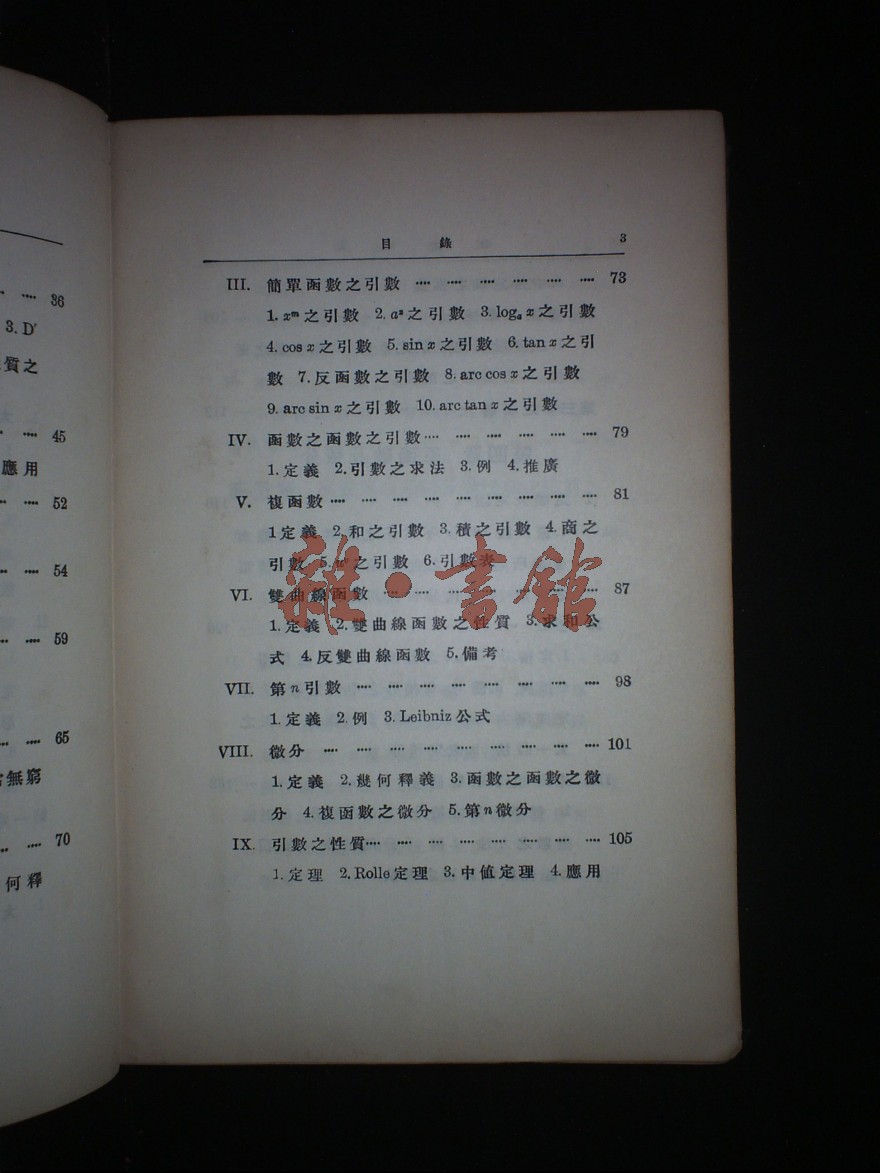 36
3. D′
質之
45
應用
52
54
59
65
無窮
70
何釋
目 錄 3
III. 簡單函數之引數 ···· ···· ···· ···· ···· ···· 73
1. xᵐ之引數 2. aˣ之引數 3. logₐ x之引數
4. cos x之引數 5. sin x之引數 6. tan x之引
數 7. 反函數之引數 8. arc cos x之引數
9. arc sin x之引數 10. arc tan x之引數
IV. 函數之函數之引數 ···· ···· ···· ···· ···· ···· 79
1. 定義 2. 引數之求法 3. 例 4. 推廣
V. 複函數 ···· ···· ···· ···· ···· ···· ···· ···· 81
1定義 2. 和之引數 3. 積之引數 4. 商之
引數 5. 之引數 6. 引數表
VI. 雙曲線函數 ···· ···· ···· ···· ···· ···· ···· 87
1. 定義 2. 雙曲線函數之性質 3. 求和公
式 4. 反雙曲線函數 5. 備考
VII. 第n引數 ···· ···· ···· ···· ···· ···· ···· ···· 98
1. 定義 2. 例 3. Leibniz公式
VIII. 微分 ···· ···· ···· ···· ···· ···· ···· ···· ···· 101
1. 定義 2. 幾何釋義 3. 函數之函數之微
分 4. 複函數之微分 5. 第n微分
IX. 引數之性質 ···· ···· ···· ···· ···· ···· ···· ···· 105
1. 定理 2. Rolle定理 3. 中値定理 4. 應用
雜·書館